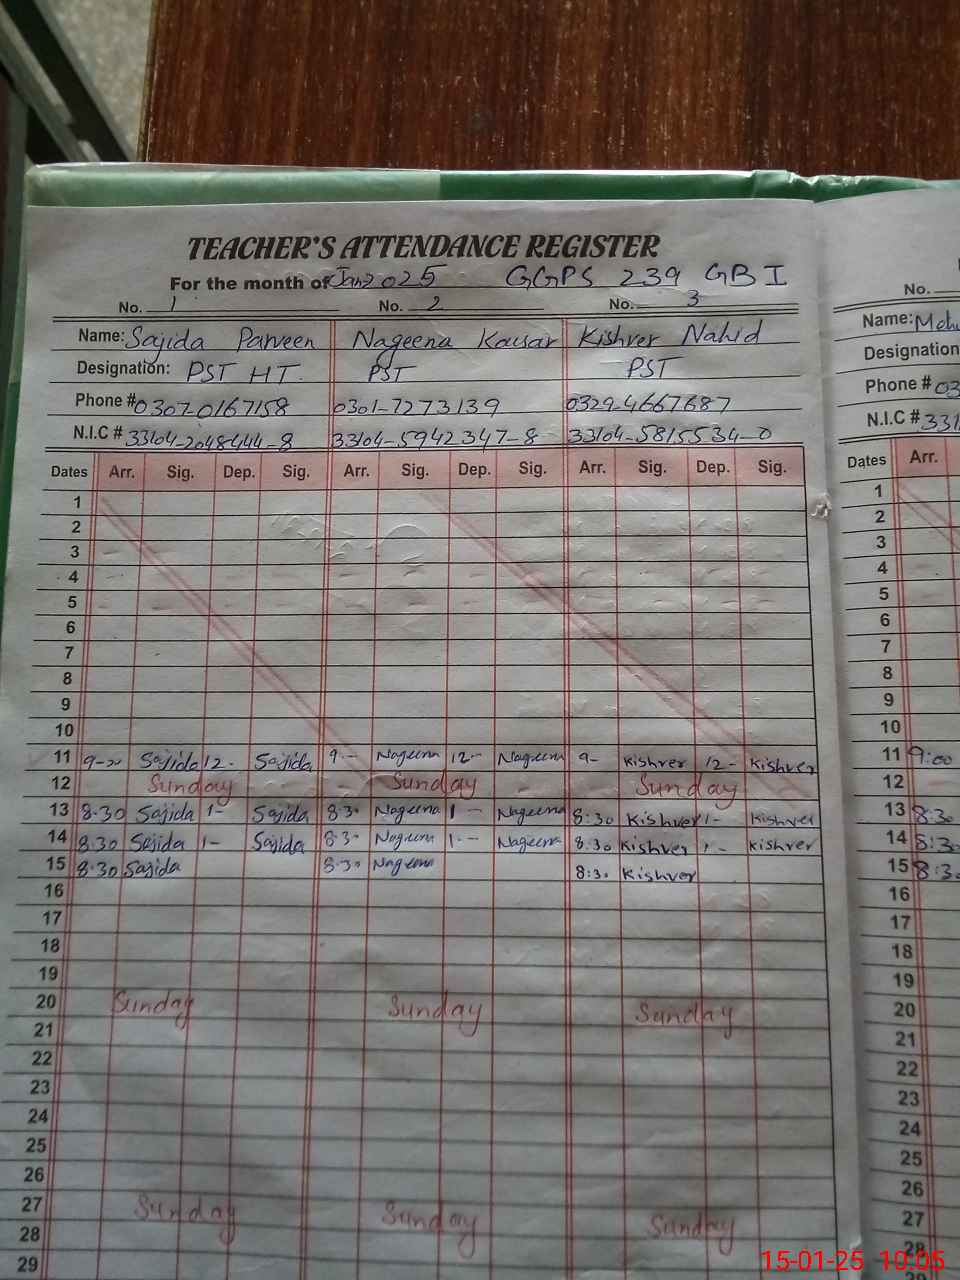 TEACHER'S ATTENDANCE REGISTER
For the month of Jan 2025 GGPS 239 GB I
No. 1 No. 2 No. 3
No.
Name: Sajida Parveen Nageena Kousar Kishver Nahid
Name:
Designation: PST HT. PST PST
Designation
Phone # 0307-0167158 0301-7273139 0329-4667687
Phone # 03
N.I.C # 33104-2048444-8 33104-5942347-8 33104-5815534-0
N.I.C # 331
Dates Arr. Sig. Dep. Sig. Arr. Sig. Dep. Sig. Arr. Sig. Dep. Sig.
Dates Arr.
1 1
2 2
3 3
4 4
5 5
6 6
7 7
8 8
9 9
10 10
11 9-00 Sajida 12- Sajida 9-- Nageena 12-- Nageena 9- Kishver 12- Kishver 11 9:00
12 Sunday Sunday Sunday 12
13 8.30 Sajida 1- Sajida 8.30 Nageena 1-- Nageena 8:30 Kishver 1- Kishver 13 8:30
14 8.30 Sajida 1- Sajida 8.30 Nageena 1-- Nageena 8:30 Kishver 1- Kishver 14 8:30
15 8.30 Sajida 8.30 Nageena 8:30 Kishver 15 8:30
16 16
17 17
18 18
19 19
20 Sunday Sunday Sunday 20
21 21
22 22
23 23
24 24
25 25
26 26
27 Sunday Sunday Sunday 27
28 28
29
15-01-25 10:05